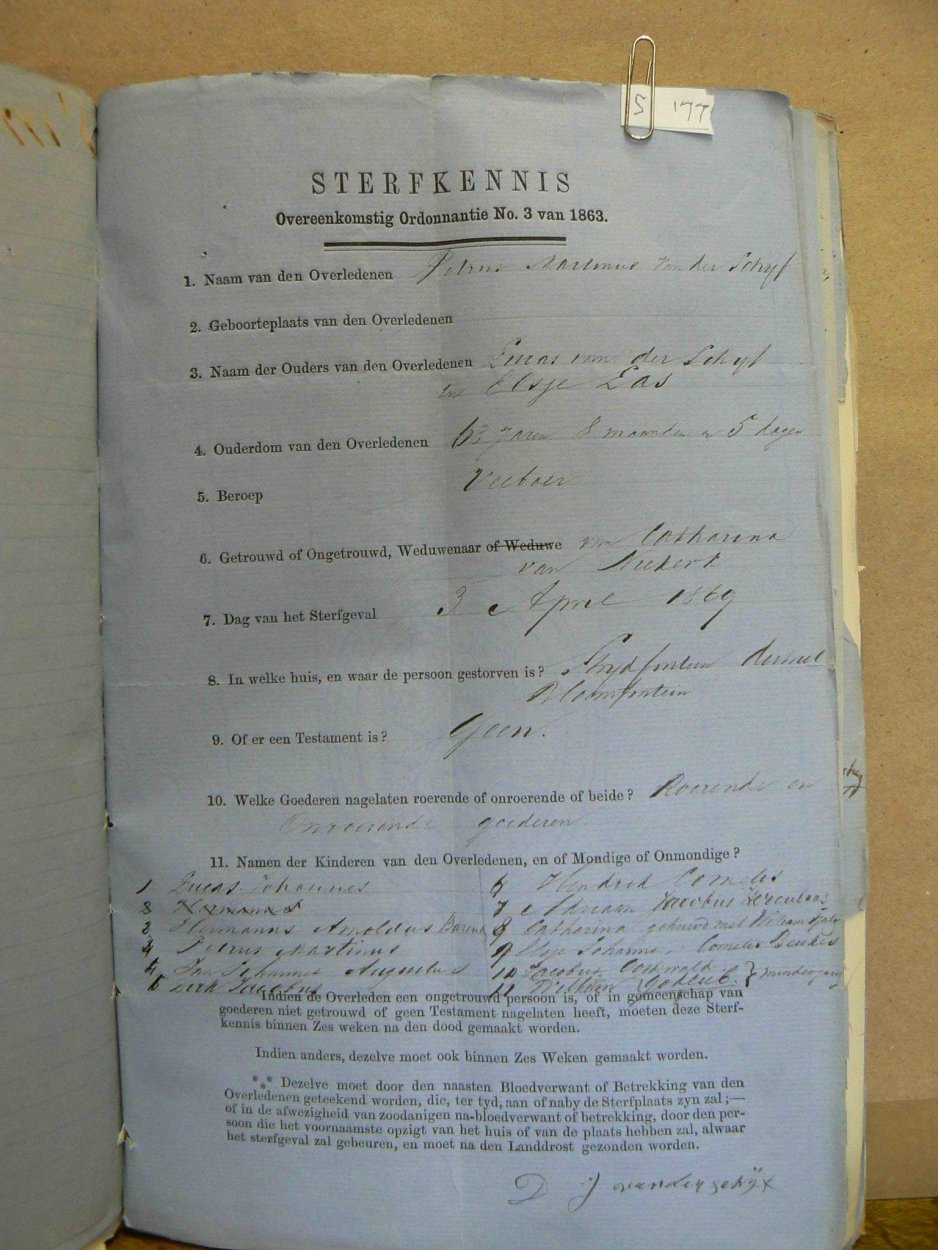 S '77
STERFKENNIS
Overeenkomstig Ordonnantie No. 3 van 1863.
1. Naam van den Overledenen Petrus Martinus van der Schyf
2. Geboorteplaats van den Overledenen
3. Naam der Ouders van den Overledenen Lucas van der Schyf
en Elsje Eas
4. Ouderdom van den Overledenen 63 Jaren 8 maanden n 5 dagen
5. Beroep Veeboer
6. Getrouwd of Ongetrouwd, Weduwenaar of Weduwe van Catharina
van Niekerk
7. Dag van het Sterfgeval 3 April 1869
8. In welke huis, en waar de persoon gestorven is? Strydfontein
Bloemfontein
9. Of er een Testament is? Geen.
10. Welke Goederen nagelaten roerende of onroerende of beide? Roerende en
Onroerende goederen
11. Namen der Kinderen van den Overledenen, en of Mondige of Onmondige?
1 Lucas Johannes
2 Hermanus
2 Hermanus Arnoldus Barend
3 Petrus Martinus
4 Jan Johannes Augustus
5 Dirk Jacobus
6 Hendrik Cornelis
7 Adriaan Jacobus Herculaas
8 Catharina gehuwd met Willem
9 Elsje Johanna, Cornelis Beukes
10 Jacobus Oostwald
11 Willem Godlieb } minderjarig
Indien de Overleden een ongetrouwd persoon is, of in gemeenschap van
goederen niet getrouwd of geen Testament nagelaten heeft, moeten deze Sterf-
kennis binnen Zes weken na den dood gemaakt worden.
Indien anders, dezelve moet ook binnen Zes Weken gemaakt worden.
*** Dezelve moet door den naasten Bloedverwant of Betrekking van den
Overledenen geteekend worden, die, ter tyd, aan of naby de Sterfplaats zyn zal;—
of in de afwezigheid van zoodanigen na-bloedverwant of betrekking, door den per-
soon die het voornaamste opzigt van het huis of van de plaats hebben zal, alwaar
het sterfgeval zal gebeuren, en moet na den Landdrost gezonden worden.
D J vanderschyf